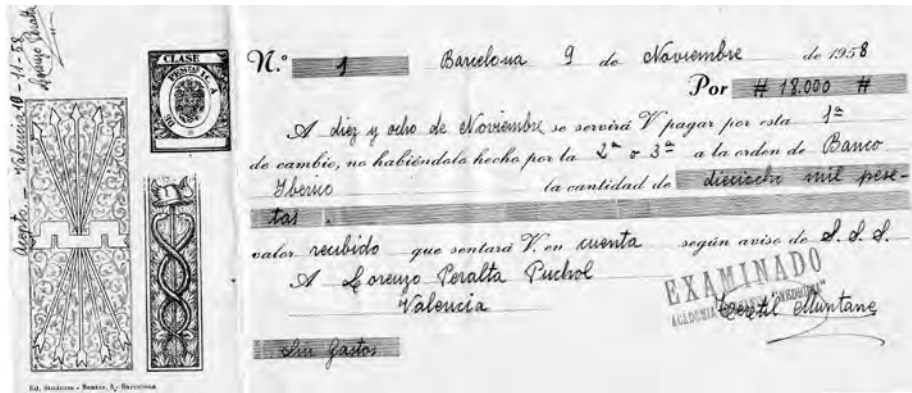 Acepto. – Valencia 10-11-58
Lorenzo Peralta
CLASE
DE
N.º 1 Barcelona 9 de Noviembre de 1958
Por # 18.000 #
A diez y ocho de Noviembre se servirá V. pagar por esta 1ª
de cambio, no habiéndolo hecho por la 2ª o 3ª a la orden de Banco
Iberico la cantidad de dieciocho mil pese-
tas.
valor recibido que sentará V. en cuenta según aviso de S. S. S.
A Lorenzo Peralta Puchol
Valencia
EXAMINADO
ACADEMIA
Textil Muntane
Sin Gastos
Barcelona